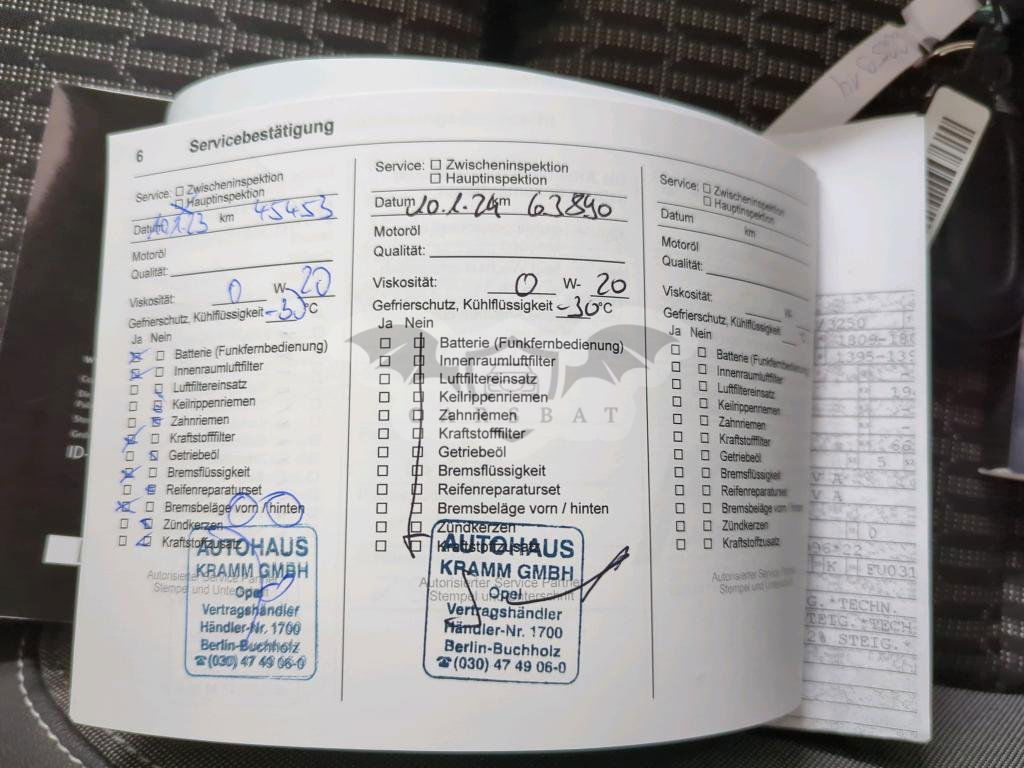 6 Servicebestätigung
Service: □ Zwischeninspektion
□ Hauptinspektion
Datum 10.1.23 km 45453
Motoröl
Qualität:
Viskosität: 0 W- 20
Gefrierschutz, Kühlflüssigkeit -30°C
Ja Nein
Batterie (Funkfernbedienung)
Innenraumluftfilter
Luftfiltereinsatz
Keilrippenriemen
Zahnriemen
Kraftstofffilter
Getriebeöl
Bremsflüssigkeit
Reifenreparaturset
Bremsbeläge vorn / hinten
Zündkerzen
Kraftstoffzusatz
Autorisierter Service Partner
Stempel und Unterschrift
AUTOHAUS
KRAMM GMBH
Opel
Vertragshändler
Händler-Nr. 1700
Berlin-Buchholz
☎(030) 47 49 06-0
Service: □ Zwischeninspektion
□ Hauptinspektion
Datum 10.1.24 km 63890
Motoröl
Qualität:
Viskosität: 0 W- 20
Gefrierschutz, Kühlflüssigkeit -30°C
Ja Nein
Batterie (Funkfernbedienung)
Innenraumluftfilter
Luftfiltereinsatz
Keilrippenriemen
Zahnriemen
Kraftstofffilter
Getriebeöl
Bremsflüssigkeit
Reifenreparaturset
Bremsbeläge vorn / hinten
Zündkerzen
Kraftstoffzusatz
Autorisierter Service Partner
Stempel und Unterschrift
AUTOHAUS
KRAMM GMBH
Opel
Vertragshändler
Händler-Nr. 1700
Berlin-Buchholz
☎(030) 47 49 06-0
Service: □ Zwischeninspektion
□ Hauptinspektion
Datum km
Motoröl
Qualität:
Viskosität: W-
Gefrierschutz, Kühlflüssigkeit °C
Ja Nein
Batterie (Funkfernbedienung)
Innenraumluftfilter
Luftfiltereinsatz
Keilrippenriemen
Zahnriemen
Kraftstofffilter
Getriebeöl
Bremsflüssigkeit
Reifenreparaturset
Bremsbeläge vorn / hinten
Zündkerzen
Kraftstoffzusatz
Autorisierter Service Partner
Stempel und Unterschrift
CARSBAT
ID-
73250
1809-180
1395-139
19
66
5
VA
VA
0
96*22
K FU031
G.*TECHN.
TEIG.*TECH
2% STEIG.*